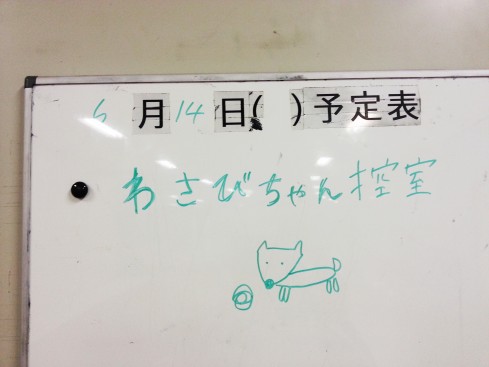 6月14日( )予定表
わさびちゃん控室